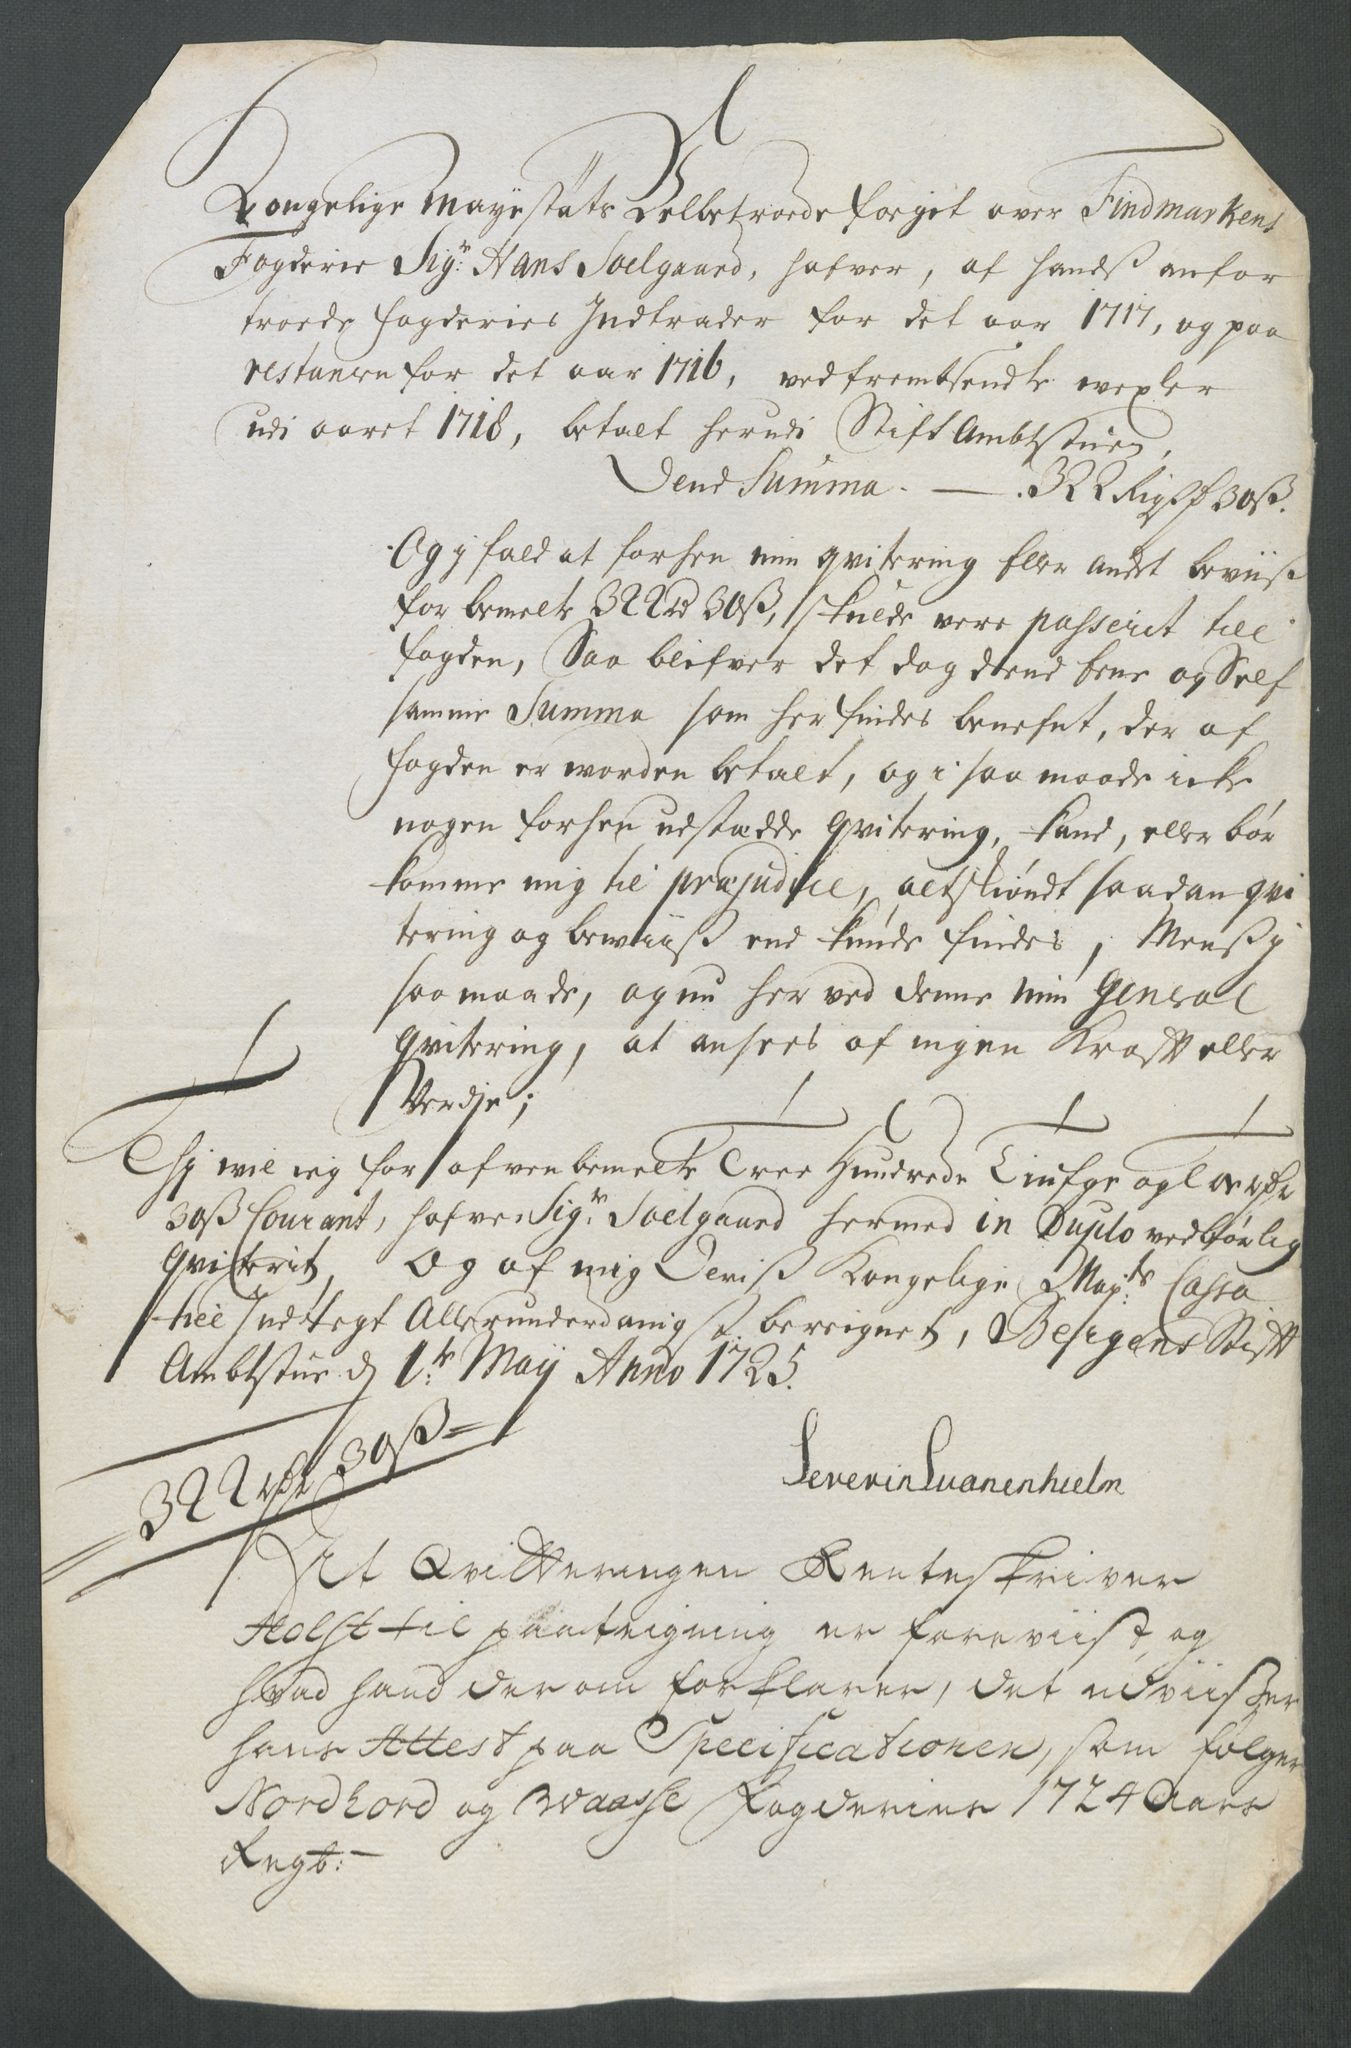 Kongelige Mayestäts Velbetroede fogit over Findmarkens
Fogderie Sigr: Hans Soelgaard, hafver, af handß anfor
troede fogderies Indtrader for det aar 1717, og paa
restancen for det aar 1716, ved fremsendte wexler
udi aaret 1718, betalt herudi Stift Ambtstuen,
Dend Summa. — .322 Rigsd 30ß.
Og j fald at forhen min qvitering Eller andet beviiß
for bemelte 322 rd 30ß, skulde vere passerit till
fogden, Saa blifver det dog dend Eene og Self
samme Summa som her findes benefnt, der af
fogden er worden betalt, og i saa maade icke
nogen forhen udstædde qvitering, kand, eller bør
komme mig til præjudice, altskiøndt saadan qvi
tering og bewiiß end kunde findes, Menß j
saa maade, og nu her ved denne min General
qvitering, at ansees af ingen Krafft eller
Verdie;
Thj wil ieg for ofvenbemelte Tree Hundrede Tiufge og Toe rdr
30ß Courant, hafve Sigr: Soelgaard hermed in Duplo vedbørlig
qviterit, Og af mig Deriß Kongelige Mayts: Cassa
till Indtegt Allerunderdanigst bereignet, Bergens Stifft
Ambtstue d 1te: Maij Anno 1725.
322 rdr 30ß
Severin Svanenhielm
At Qvitteringen Renteskriver
Holst til paateigning er foreviist, og
hvad hand derom forklarer, det udviisser
hans Attest paa Specificationen, som følger
Nordhord og Waasse Fogderies 1724 Aars
Regb: